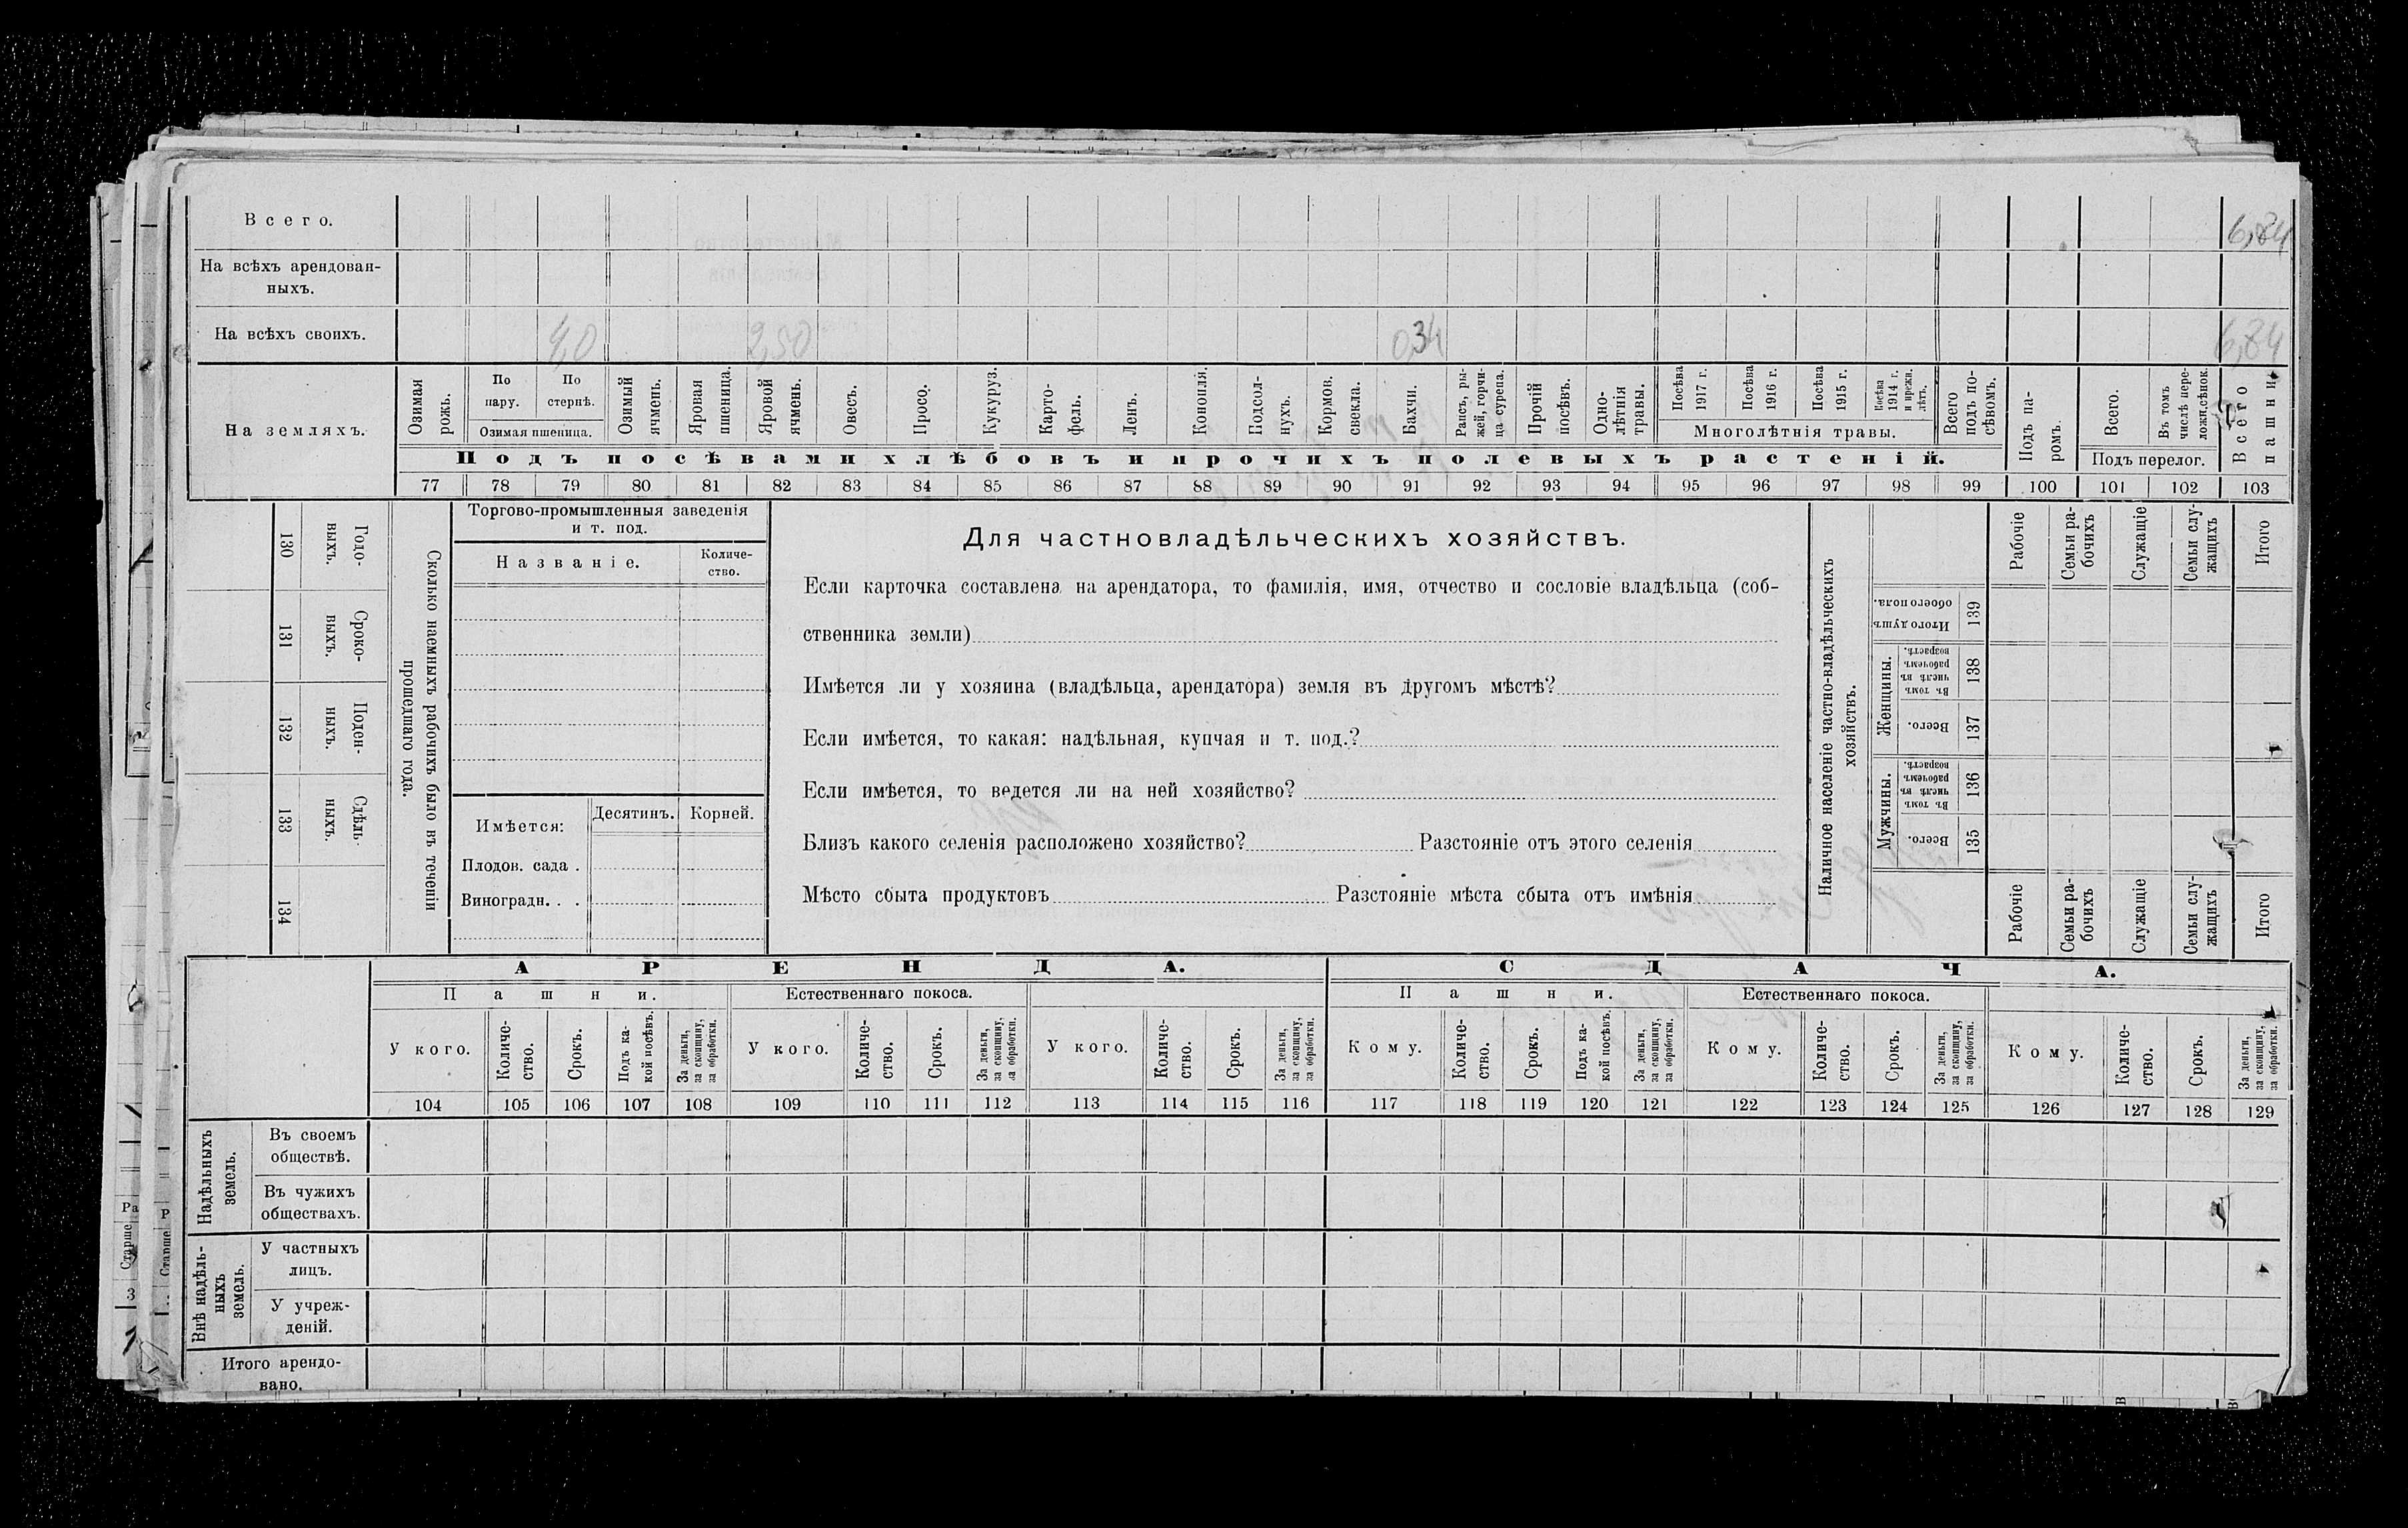 Всего. 6,84
На всѣхъ арендован-
ныхъ.
На всѣхъ своихъ. 4,0 2,50 0,34 6,84
На земляхъ.
Озимая рожь.
По пару.
По стернѣ.
Озимая пшеница.
Озимый ячмень.
Яровая пшеница.
Яровой ячмень.
Овесъ.
Просо.
Кукуруз.
Карто-
фель.
Ленъ.
Конопля.
Подсол-
нухъ.
Кормов. свекла.
Бахчи.
Рапсъ, ры-
жей, горчи-
ца сурепа.
Прочій посѣвъ.
Одно-
лѣтнія травы.
Посѣва 1917 г.
Посѣва 1916 г.
Посѣва 1915 г.
Посѣва 1914 г. и прежн. лѣтъ.
Многолѣтнія травы.
Всего подъ по-
сѣвомъ.
Подъ посѣвами хлѣбовъ и прочихъ полевыхъ растеній.
Подъ па-
ромъ.
Всего.
Въ томъ числѣ пере-
ложн.сѣнок.
Подъ перелог.
Всего пашни
77 78 79 80 81 82 83 84 85 86 87 88 89 90 91 92 93 94 95 96 97 98 99 100 101 102 103
130 Годо-
выхъ.
131 Сроко-
выхъ.
132 Поден-
ныхъ.
133 Сдѣль-
ныхъ.
134
Сколько наемныхъ рабочихъ было въ теченіи
прошедшаго года.
Торгово-промышленныя заведенія
и т. под.
Названіе.
Количе-
ство.
Имѣется:
Десятинъ.
Корней.
Плодов. сада .
Виноградн. . .
Для частновладѣльческихъ хозяйствъ.
Если карточка составлена на арендатора, то фамилія, имя, отчество и сословіе владѣльца (соб-
ственника земли)
Имѣется ли у хозяина (владѣльца, арендатора) земля въ другомъ мѣстѣ?
Если имѣется, то какая: надѣльная, купчая и т. под.?
Если имѣется, то ведется ли на ней хозяйство?
Близъ какого селенія расположено хозяйство? Разстояніе отъ этого селенія
Мѣсто сбыта продуктовъ Разстояніе мѣста сбыта отъ имѣнія
Наличное населеніе частно-владѣльческихъ
хозяйствъ.
Рабочіе
Семьи ра-
бочихъ
Служащіе
Семьи слу-
жащихъ
Итого
Итого душъ обоего пола. 139
Женщины.
Въ томъ числѣ въ рабочемъ возрастѣ. 138
Всего. 137
Мужчины.
Въ томъ числѣ въ рабочемъ возрастѣ. 136
Всего. 135
Рабочіе
Семьи ра-
бочихъ
Служащіе
Семьи слу-
жащихъ
Итого
АРЕНДА. СДАЧА.
Пашни. Естественнаго покоса. Пашни. Естественнаго покоса.
У кого.
Количе-
ство.
Срокъ.
Подъ ка-
кой посѣвъ.
За деньги, за скопщину, за обработки.
У кого.
Количе-
ство.
Срокъ.
За деньги, за скопщину, за обработки.
У кого.
Количе-
ство.
Срокъ.
За деньги, за скопщину, за обработки.
Кому.
Количе-
ство.
Срокъ.
Подъ ка-
кой посѣвъ.
За деньги, за скопщину, за обработки.
Кому.
Количе-
ство.
Срокъ.
За деньги, за скопщину, за обработки.
Кому.
Количе-
ство.
Срокъ.
За деньги, за скопщину, за обработки.
104 105 106 107 108 109 110 111 112 113 114 115 116 117 118 119 120 121 122 123 124 125 126 127 128 129
Надѣльныхъ
земель.
Въ своемъ
обществѣ.
Въ чужихъ
обществахъ.
Внѣ надѣль-
ныхъ
земель.
У частныхъ
лицъ.
У учреж-
деній.
Итого арендо-
вано.
Ра
Старше
3
Р
Старше